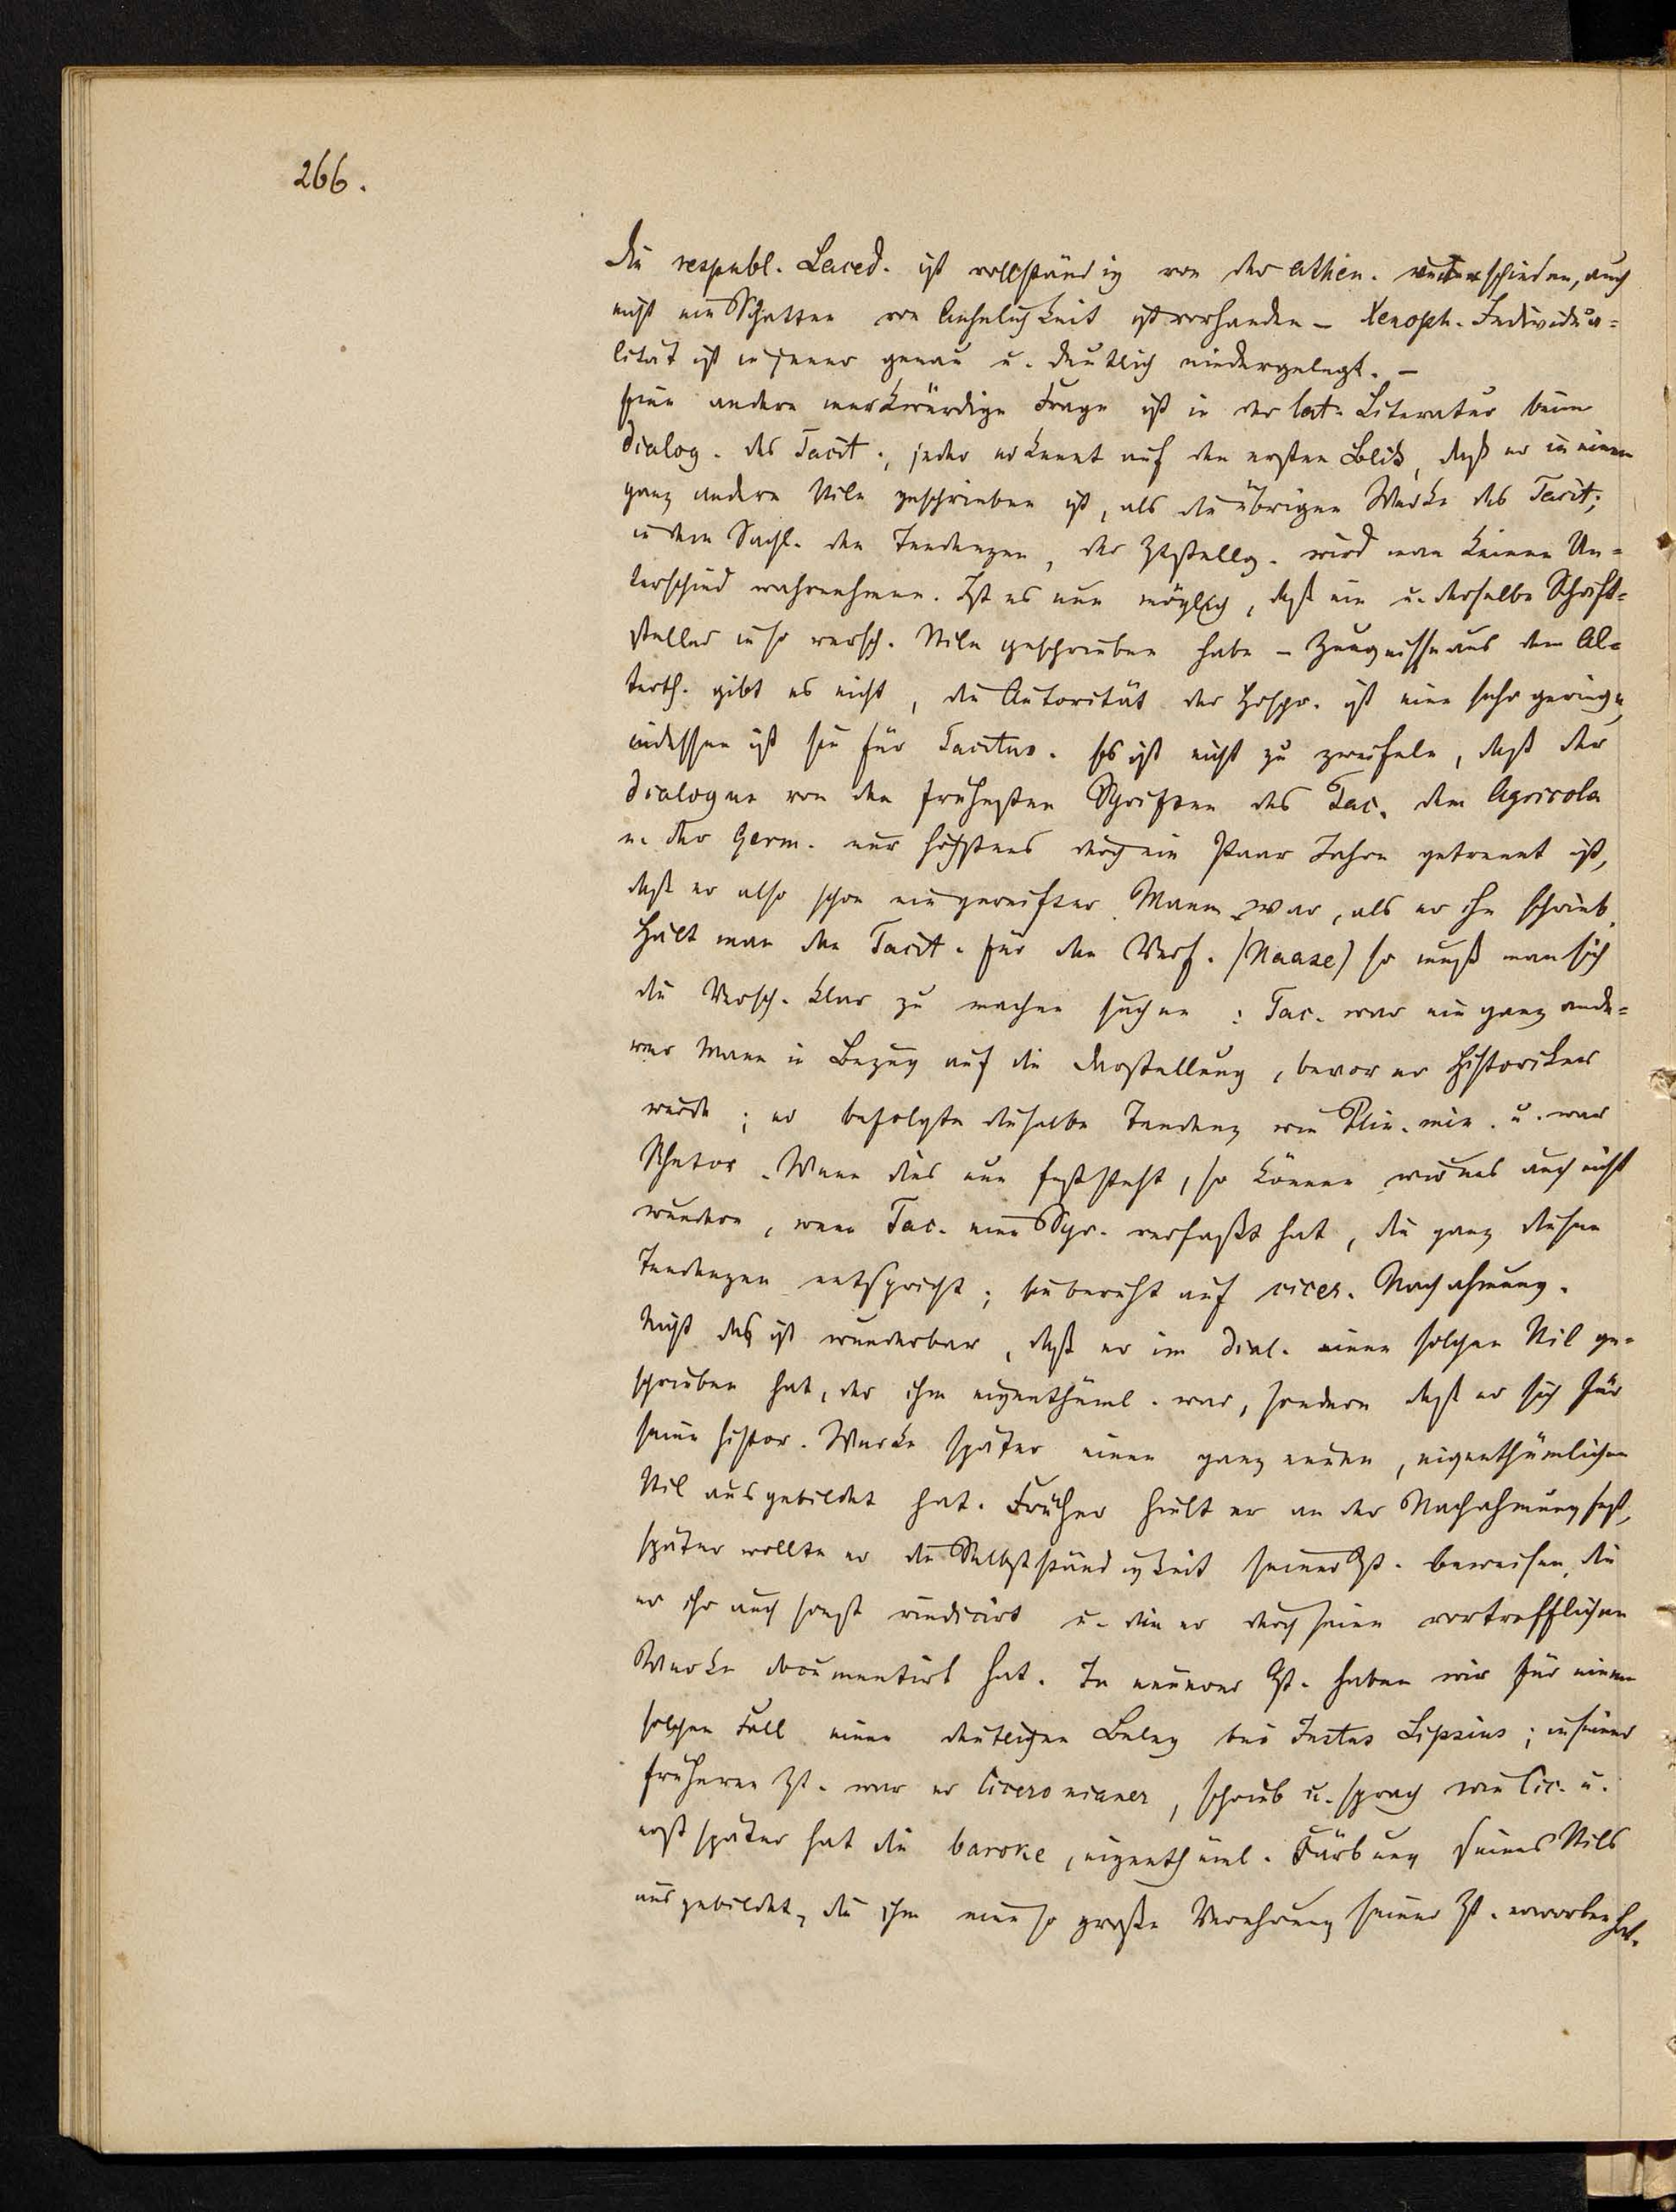 266.
Die respubl. Laced. ist vollständig von der Athen. unterschieden, auch
nicht ein Schatten von Aehnlichkeit ist vorhanden – Xenoph. Individua=
lität ist in jener genau u. deutlich niedergelegt. –
Eine andere merkwürdige Frage ist in der lat. Literatur beim
Dialog. des Tacit., jeder erkennt auf den ersten Blick, daß er in einem
ganz andern Stile geschrieben ist, als die übrigen Werke des Tacit;
in dem Sachl. den Tendenzen, der Ztstellg. wird man keinen Un=
terschied wahrnehmen. Ist es nun möglich, daß ein u. derselbe Schrift=
steller in so versch. Stile geschrieben habe – Zeugnisse aus dem Al=
terth. gibt es nicht, die Autorität der Hdschr. ist eine sehr geringe,
indessen ist sie für Tacitus. Es ist nicht zu zweifeln, daß der
Dialogus von den frühesten Schriften des Tac. dem Agricola
u. der Germ. nur höchstens durch ein Paar Jahre getrennt ist,
daß er also schon ein gereifter Mann war, als er ihn schrieb.
Hält man den Tacit. für den Verf. (Haase) so muß man sich
die Versch. klar zu machen suchen: Tac. war ein ganz ande=
rer Mann in Bezug auf die Darstellung, bevor er Historiker
wurde; er befolgte dieselbe Tendenz wie Plin. min. u. war
Rhetor. Wenn dies nun feststeht, so können wir uns auch nicht
wundern, wenn Tac. eine Schr. verfaßt hat, die ganz diesen
Tendenzen entspricht; sie beruht auf cicer. Nachahmung.
Nicht das ist wunderbar, daß er im Dial. einen solchen Stil ge=
schrieben hat, der ihm eigenthüml. war, sondern daß er sich für
seine histor. Werke später einen ganz neuen, eigenthümlichen
Stil ausgebildet hat. Früher hielt er an der Nachahmung fest,
später wollte er die Selbstständigkeit seiner Zt. beweisen, die
er ihr auch sonst vindicirt u. die er durch seine vortrefflichen
Werke documentirt hat. In neuerer Zt. haben wir für einen
solchen Fall einen deutlichen Beleg bei Justus Lipsius; in seiner
früheren Zt. war er Ciceronianer, schrieb u. sprach wie Cic. u.
erst später hat die baroke, eigenthüml. Färbung seines Stils
ausgebildet, die ihm eine so große Verehrung seiner Zt. erworben hat.